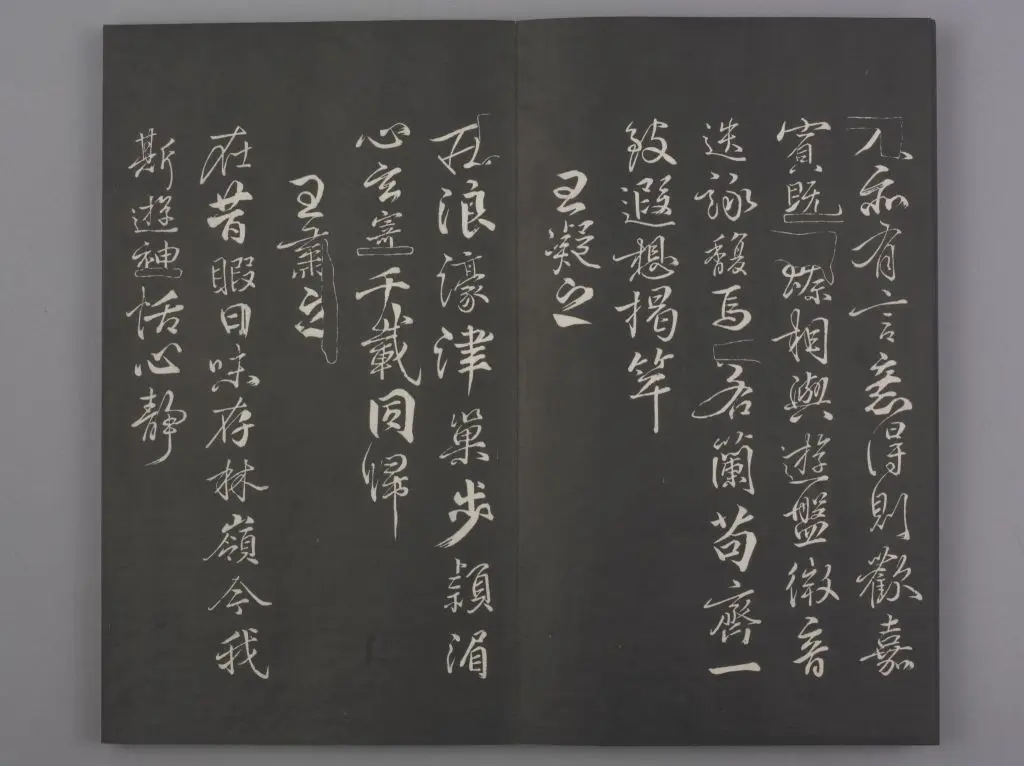 人亦有言意得則歡嘉
賓既臻相與遊盤微音
迭詠馥焉若蘭苟齊一
致遐想揭竿
王凝之
浪濠津巢步潁湄
心玄寄千載同歸
王肅之
在昔暇日味存林嶺今我
斯遊神恬心靜